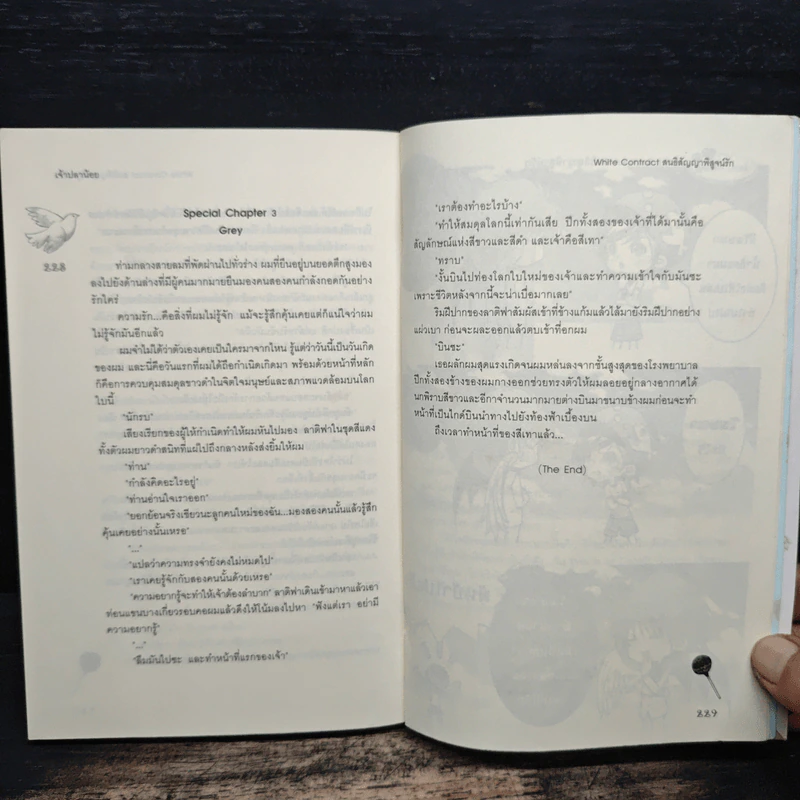 เจ้าปลาน้อย
Special Chapter 3
Grey
228
ท่ามกลางสายลมที่พัดผ่านไปทั่วร่าง ผมที่ยืนอยู่บนยอดตึกสูงมอง
ลงไปยังด้านล่างที่มีผู้คนมากมายยืนมองคนสองคนกำลังกอดกันอย่าง
รักใคร่
ความรัก...คือสิ่งที่ผมไม่รู้จัก แม้จะรู้สึกคุ้นเคยแต่ก็แน่ใจว่าผม
ไม่รู้จักมันอีกแล้ว
ผมจำไม่ได้ว่าตัวเองเคยเป็นใครมาจากไหน รู้แต่ว่าวันนี้เป็นวันเกิด
ของผม และนี่คือวันแรกที่ผมได้ถือกำเนิดเกิดมา พร้อมด้วยหน้าที่หลัก
ก็คือการควบคุมสมดุลขาวดำในจิตใจมนุษย์และสภาพแวดล้อมบนโลก
ใบนี้
"นักรบ"
เสียงเรียกของผู้ให้กำเนิดทำให้ผมหันไปมอง ลาติฟาในชุดสีแดง
ทั้งตัวผมยาวดำสนิทที่แผ่ไปถึงกลางหลังส่งยิ้มให้ผม
"ท่าน"
"กำลังคิดอะไรอยู่"
"ท่านอ่านใจเราออก"
"ยอกย้อนจริงเชียวนะลูกคนใหม่ของฉัน...มองสองคนนั้นแล้วรู้สึก
คุ้นเคยอย่างนั้นเหรอ"
"..."
"แปลว่าความทรงจำยังคงไม่หมดไป"
"เราเคยรู้จักกับสองคนนั้นด้วยเหรอ"
"ความอยากรู้จะทำให้เจ้าต้องลำบาก" ลาติฟาเดินเข้ามาหาแล้วเอา
ท่อนแขนบางเกี่ยวรอบคอผมแล้วดึงให้โน้มลงไปหา "ฟังแต่เรา อย่ามี
ความอยากรู้"
"..."
"ลืมมันไปซะ และทำหน้าที่แรกของเจ้า"
White Contract สนธิสัญญาพิสูจน์รัก
"เราต้องทำอะไรบ้าง"
"ทำให้สมดุลโลกนี้เท่ากันเสีย ปีกทั้งสองของเจ้าที่ได้มานั้นคือ
สัญลักษณ์แห่งสีขาวและสีดำ และเจ้าคือสีเทา"
"ทราบ"
"งั้นบินไปท่องโลกใบใหม่ของเจ้าและทำความเข้าใจกับมันซะ
เพราะชีวิตหลังจากนี้จะน่าเบื่อมากเลย"
ริมฝีปากของลาติฟาสัมผัสเข้าที่ข้างแก้มแล้วไล้มายังริมฝีปากอย่าง
แผ่วเบา ก่อนจะผละออกแล้วตบเข้าที่อกผม
"บินซะ"
เธอผลักผมสุดแรงเกิดจนผมหล่นลงจากชั้นสูงสุดของโรงพยาบาล
ปีกทั้งสองข้างของผมกางออกช่วยทรงตัวให้ผมลอยอยู่กลางอากาศได้
นกพิราบสีขาวและอีกาจำนวนมากมายต่างบินมาขนาบข้างผมก่อนจะทำ
หน้าที่เป็นไกด์บินนำทางไปยังท้องฟ้าเบื้องบน
ถึงเวลาทำหน้าที่ของสีเทาแล้ว...
(The End)
229